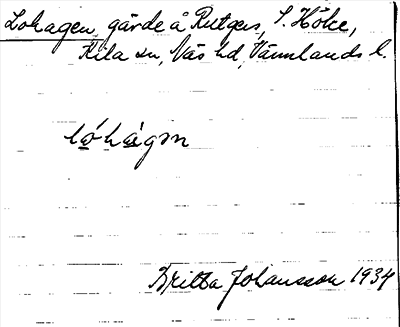 Lohagen, gärde å Rutgers, S. Höke,
Kila sn, Näs hd, Värmlands l.
lóhàgən
Britta Johansson 1934